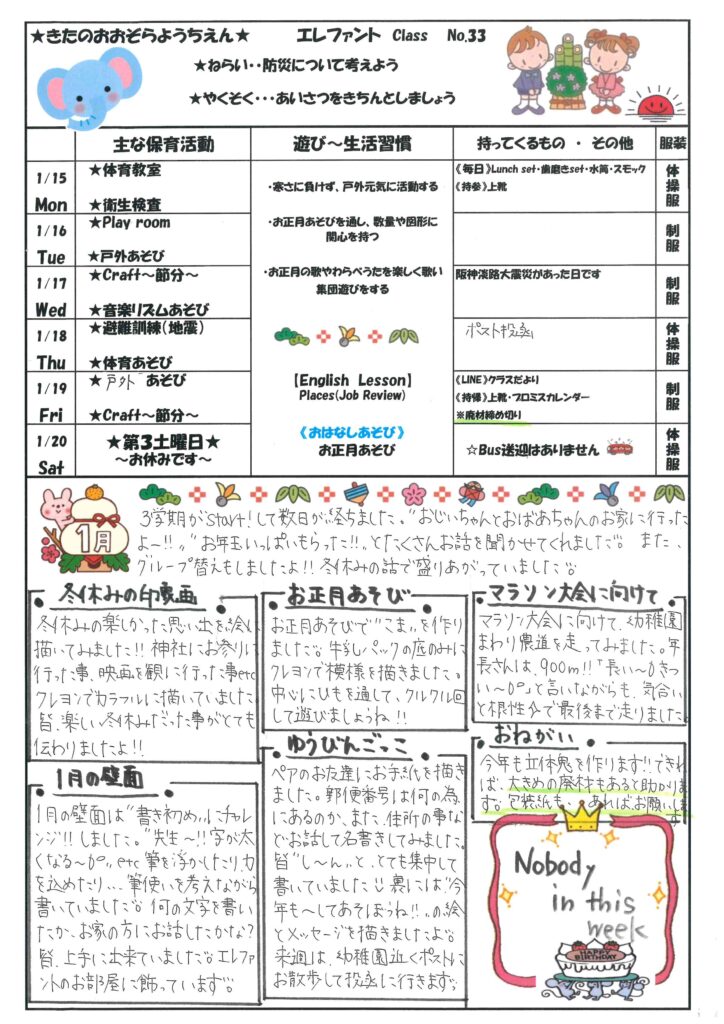 ★きたのおおぞらようちえん★ エレファント Class No.33
★ねらい・・防災について考えよう
★やくそく・・・あいさつをきちんとしましょう
主な保育活動 遊び～生活習慣 持ってくるもの・その他 服装
1/15 Mon
★体育教室
★衛生検査
・寒さに負けず、戸外元気に活動する
《毎日》Lunch set・歯磨きset・水筒・スモック
《持参》上靴
体操服
1/16 Tue
★Play room
★戸外あそび
・お正月あそびを通し、数量や図形に
関心を持つ
制服
1/17 Wed
★Craft～節分～
★音楽リズムあそび
・お正月の歌やわらべうたを楽しく歌い
集団遊びをする
阪神淡路大震災があった日です
制服
1/18 Thu
★避難訓練(地震)
★体育あそび
ポスト投函
体操服
1/19 Fri
★戸外あそび
★Craft～節分～
【English Lesson】
Places(Job Review)
《LINE》クラスだより
《持帰》上靴・プロミスカレンダー
※廃材締め切り
制服
1/20 Sat
★第3土曜日★
～お休みです～
《おはなしあそび》
お正月あそび
☆Bus送迎はありません
体操服
1月
3学期がstart!して数日が経ちました。"おじいちゃんとおばあちゃんのお家に行った
よ～!!""お年玉いっぱいもらった!!"とたくさんお話を聞かせてくれました。また、
グループ替えもしましたよ!!冬休みの話で盛りあがっていました。
冬休みの印象画
冬休みの楽しかった思い出を絵に
描いてみました!!神社にお参りに
行った事、映画を観に行った事etc
クレヨンでカラフルに描いていました。
皆、楽しい冬休みだった事がとても
伝わりましたよ!!
1月の壁面
1月の壁面は"書き初め"にチャレ
ンジ!!しました。"先生～!!字が太
くなる～"etc 筆を浮かしたり力
を込めたり…筆使いを考えながら
書いていました。何の文字を書い
たか、お家の方にお話したかな?
皆、上手に出来ていました。エレファ
ントのお部屋に飾っています。
お正月あそび
お正月あそびで"こま"を作り
ました。牛乳パックの底のみに
クレヨンで模様を描きました。
中心にひもを通して、クルクル回
して遊びましょうね!!
ゆうびんごっこ
ペアのお友達にお手紙を描き
ました。郵便番号は何の為
にあるのか、また、住所の事な
どお話して名書きしてみました。
皆"し～ん"と、とても集中して
書いていました 裏には"今
年も～してあそぼうね!!"の絵
とメッセージを描きましたよ。
来週は、幼稚園近くポストに
お散歩して投函に行きます。
マラソン大会に向けて
マラソン大会に向けて、幼稚園
まわり農道を走ってみました。年
長さんは、900m!!「長い～!きつ
い～!」と言いながらも、気合い
と根性で最後まで走りました
おねがい
今年も立体鬼を作ります!!できれ
ば、大きめの廃材もあると助かりま
す。包装紙も、あればお願いしま
す
Nobody
in this
week
HAPPY
BIRTHDAY